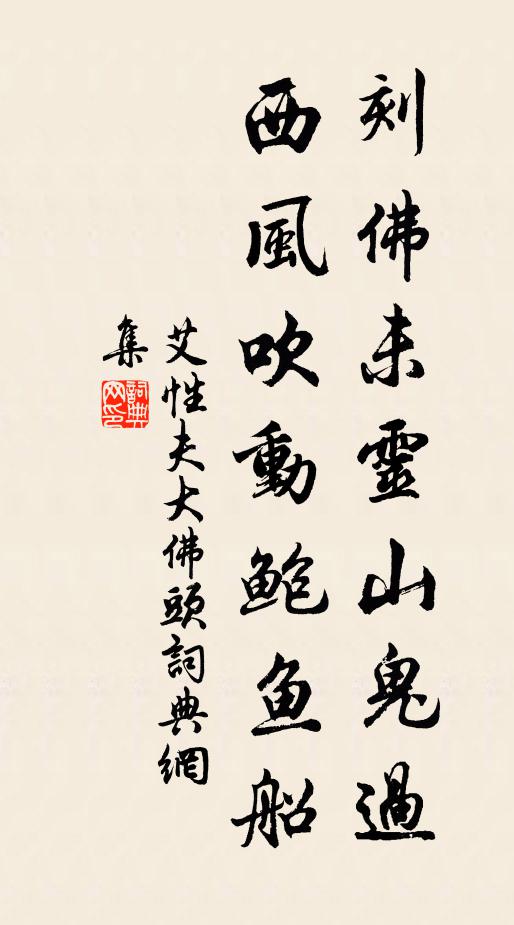 刻佛未靈山鬼過
西風吹動鮑魚船
艾性夫大佛頭詞典網
集
詞典網印